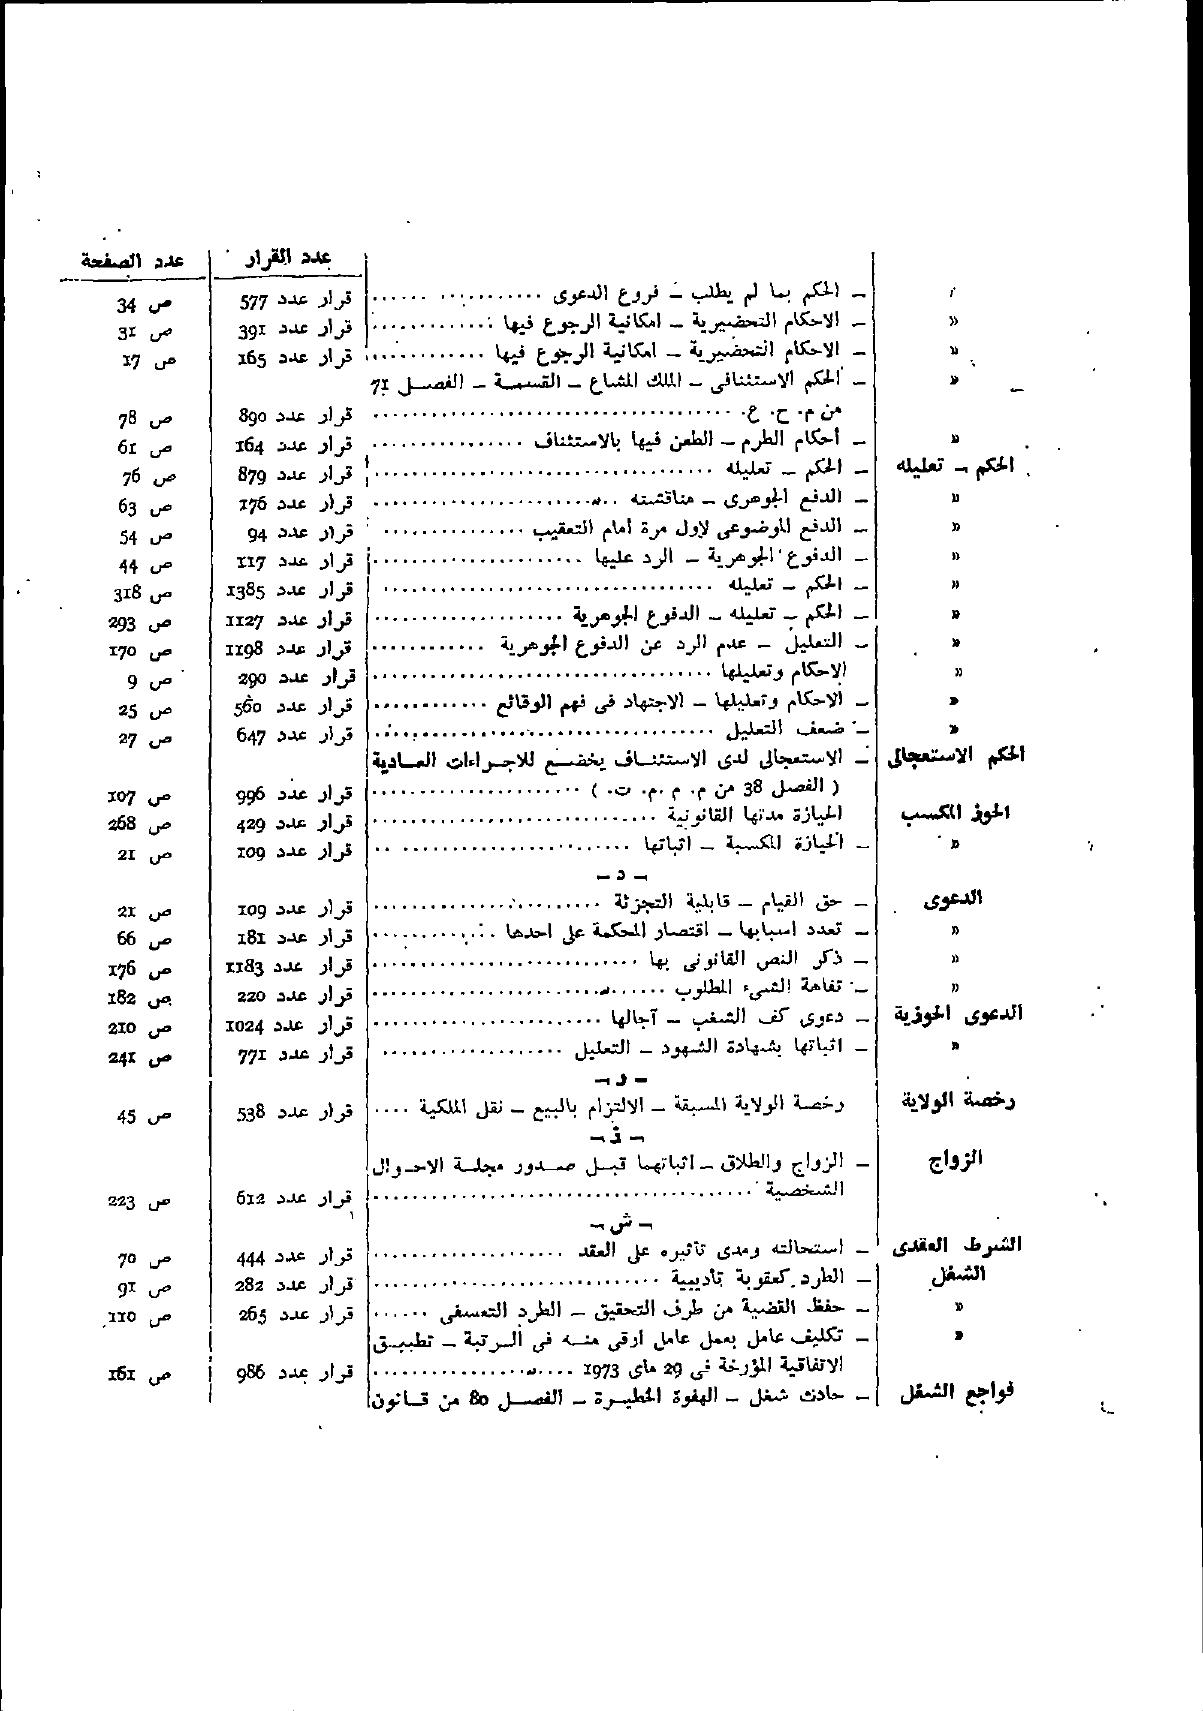 عدد القرار عدد الصفحة
» — الحكم بما لم يطلب – فروع الدعوى .......... قرار عدد 577 ص 34
» — الاحكام التحضيرية – امكانية الرجوع فيها .......... قرار عدد 391 ص 31
» — الاحكام التحضيرية – امكانية الرجوع فيها .......... قرار عدد 165 ص 17
» — الحكم الاستئنافى – الملك المشاع – القسمة – الفصل 71
من م. ح. ع. .......... قرار عدد 890 ص 78
» — أحكام الطرم – الطعن فيها بالاستئناف .......... قرار عدد 164 ص 61
الحكم – تعليله — الحكم – تعليله .......... قرار عدد 879 ص 76
» — الدفع الجوهرى – مناقشته .......... قرار عدد 176 ص 63
» — الدفع الموضوعى لاول مرة أمام التعقيب .......... قرار عدد 94 ص 54
» — الدفوع الجوهرية – الرد عليها .......... قرار عدد 117 ص 44
» — الحكم – تعليله .......... قرار عدد 1385 ص 318
» — الحكم – تعليله – الدفوع الجوهرية .......... قرار عدد 1127 ص 293
» — التعليل – عدم الرد عن الدفوع الجوهرية .......... قرار عدد 1198 ص 170
» الاحكام وتعليلها .......... قرار عدد 290 ص 9
» — الاحكام وتعليلها – الاجتهاد فى فهم الوقائع .......... قرار عدد 560 ص 25
» — ضعف التعليل .......... قرار عدد 647 ص 27
الحكم الاستعجالى — الاستعجالى لدى الاستئناف يخضع للاجراءات العادية
( الفصل 38 من م. م .م. ت. ) .......... قرار عدد 996 ص 107
الحوز المكسب الحيازة مدتها القانونية .......... قرار عدد 429 ص 268
» — الحيازة المكسبة – اثباتها .......... قرار عدد 109 ص 21
– د –
الدعوى — حق القيام – قابلية التجزئة .......... قرار عدد 109 ص 21
» — تعدد اسبابها – اقتصار المحكمة على احدها .......... قرار عدد 181 ص 66
» — ذكر النص القانونى بها .......... قرار عدد 1183 ص 176
» — تفاهة الشىء المطلوب .......... قرار عدد 220 ص 182
الدعوى الحوزية — دعوى كف الشغب – آجالها .......... قرار عدد 1024 ص 210
» — اثباتها بشهادة الشهود – التعليل .......... قرار عدد 771 ص 241
– ر –
رخصة الولاية رخصة الولاية المسبقة – الالتزام بالبيع – نقل الملكية .... قرار عدد 538 ص 45
– ز –
الزواج — الزواج والطلاق – اثباتهما قبل صدور مجلة الاحوال
الشخصية .......... قرار عدد 612 ص 223
– ش –
الشرط العقدى — استحالته ومدى تأثيره على العقد .......... قرار عدد 444 ص 70
الشغل — الطرد كعقوبة تأديبية .......... قرار عدد 282 ص 91
» — حفظ القضية من طرف التحقيق – الطرد التعسفى ...... قرار عدد 265 ص 110
» — تكليف عامل بعمل عامل ارقى منه فى الرتبة – تطبيق
الاتفاقية المؤرخة فى 29 ماى 1973 .......... قرار عدد 986 ص 161
فواجع الشغل — حادث شغل – الهفوة الخطيرة – الفصل 80 من قانون